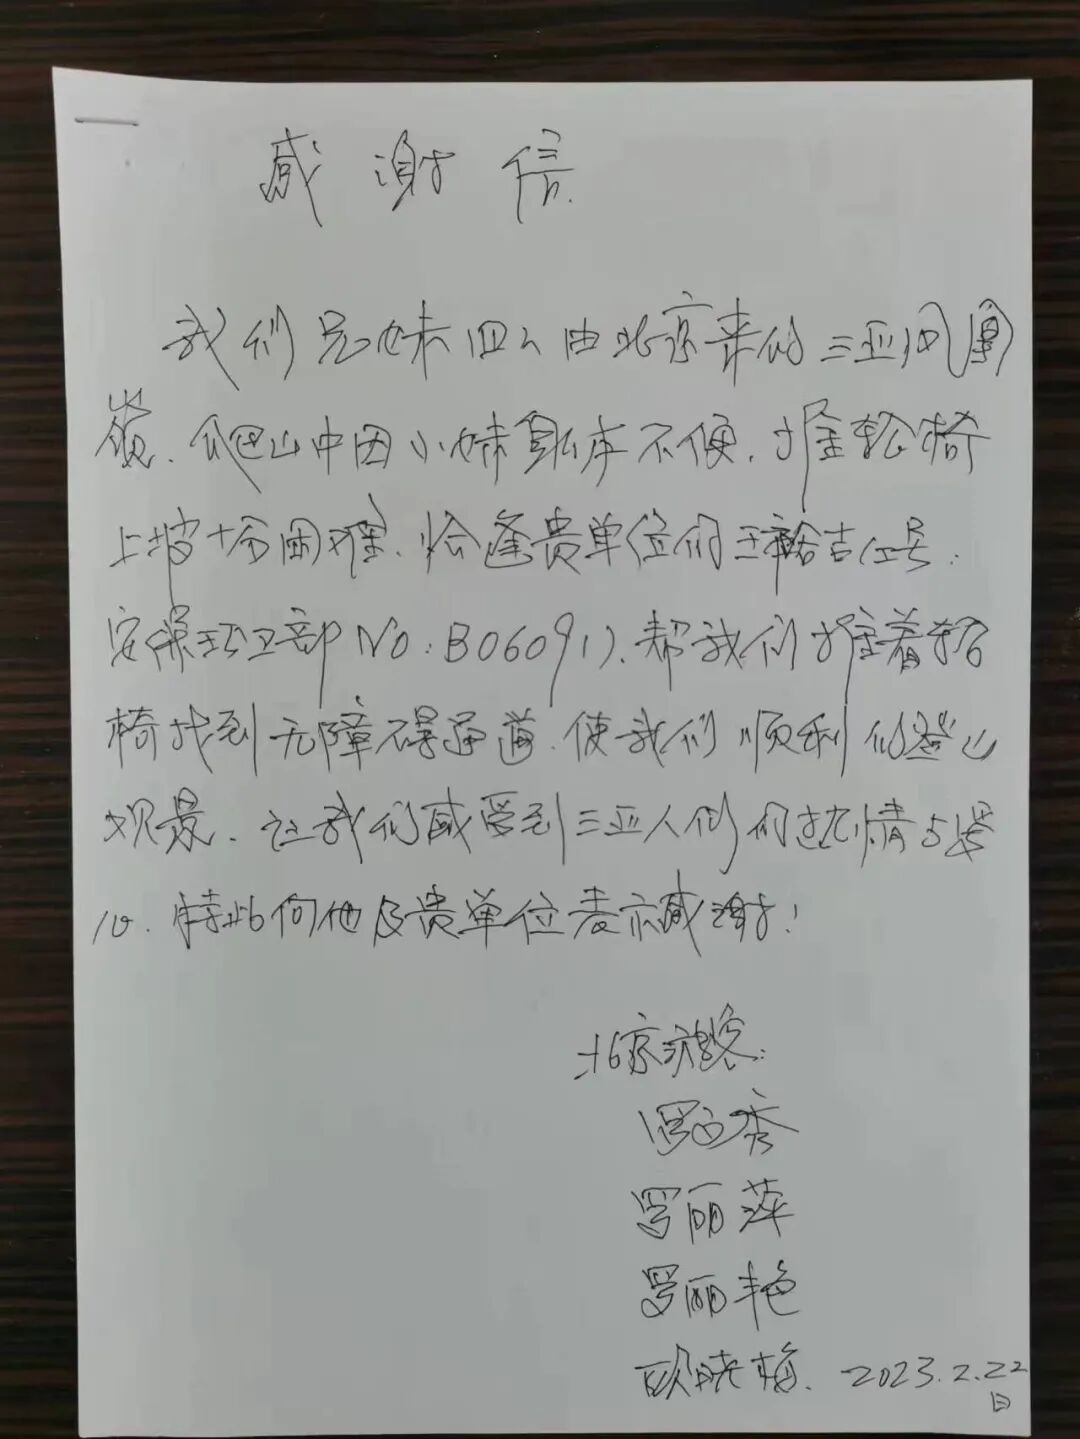 感谢信
我们兄妹四人由北京来的三亚凤凰
岭、爬山中因小妹身体不便,推轮椅
上坡十分困难、恰逢贵单位的王裕吉(工号:
安保环卫部NO:B06091)、帮我们推着轮
椅找到无障碍通道、使我们顺利的登山
观景、让我们感受到三亚人们的热情与爱
心、特此向他及贵单位表示感谢!
北京游客:
罗文秀
罗丽萍
罗丽艳
欧晓梅、2023.2.22
日